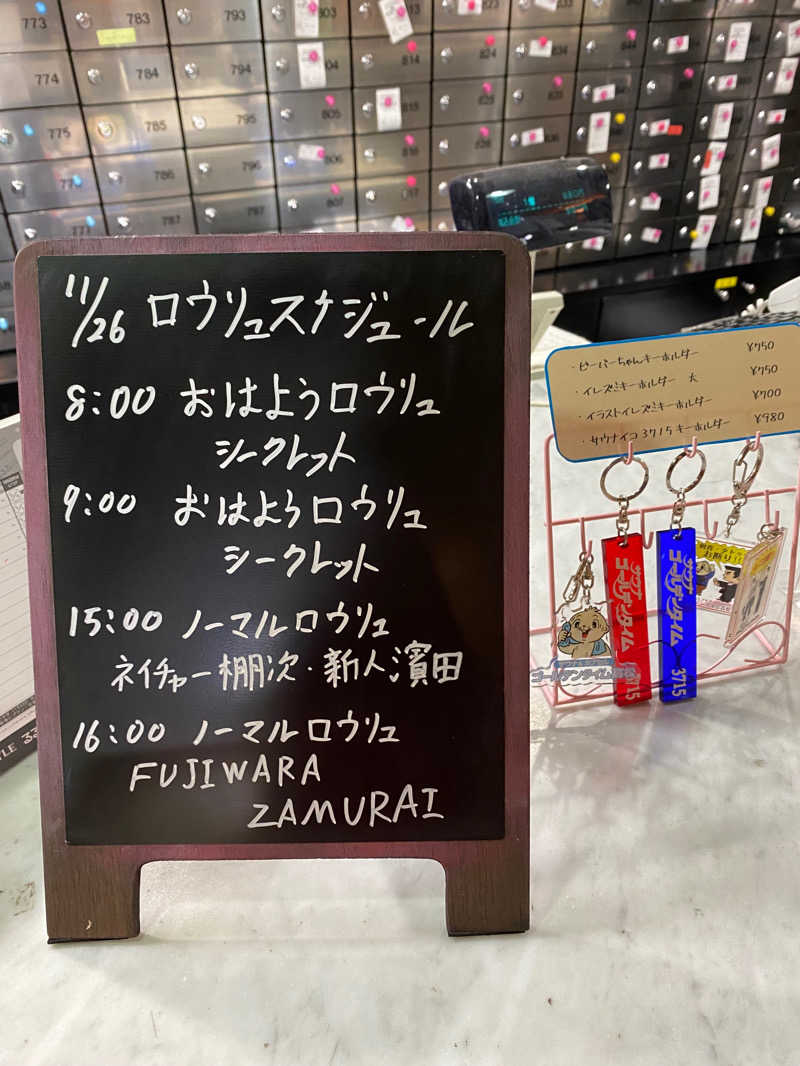 11/26 ロウリュスケジュール
8:00 おはようロウリュ
シークレット
9:00 おはようロウリュ
シークレット
15:00 ノーマルロウリュ
ネイチャー棚次・新人濱田
16:00 ノーマルロウリュ
FUJIWARA
ZAMURAI
・ビーバーちゃんキーホルダー ¥750
・イレズミキーホルダー 大 ¥750
・イラストイレズミキーホルダー ¥700
・サウナイコ3715キーホルダー ¥980
サウナ
ゴールデンタイム
3715
サウナ
ゴールデンタイム
3715
773
783
793
803
774
784
794
804
814
834
844
775
785
795
805
815
825
786
796
806
816
826
787
797
807
817